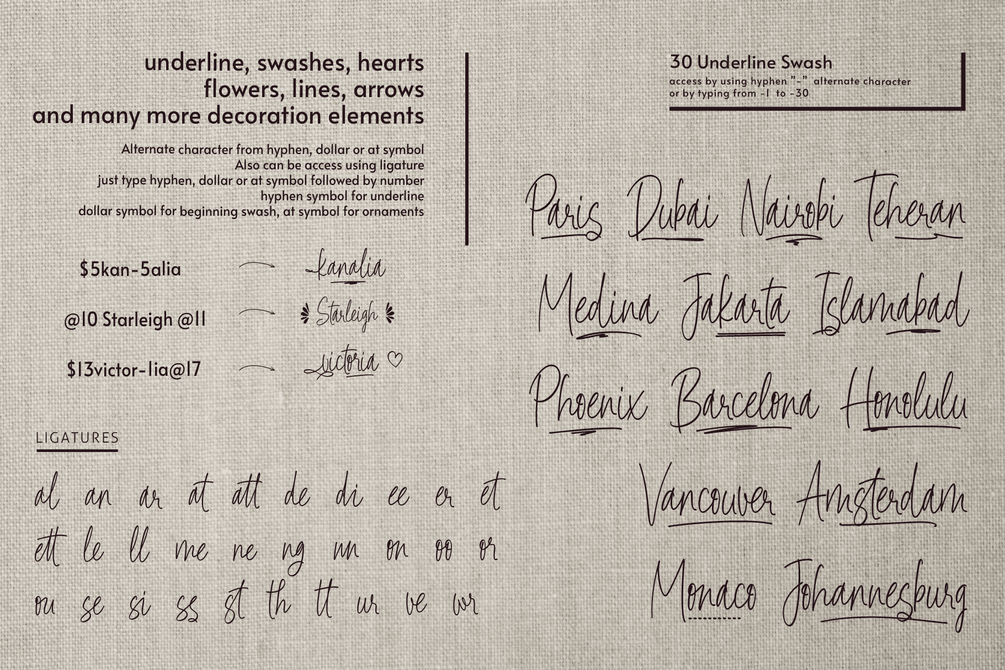 underline, swashes, hearts
flowers, lines, arrows
and many more decoration elements
Alternate character from hyphen, dollar or at symbol
Also can be access using ligature
just type hyphen, dollar or at symbol followed by number
hyphen symbol for underline
dollar symbol for beginning swash, at symbol for ornaments
$5kan-5alia kanalia
@10 Starleigh @11 Starleigh
$13victor-1ia@17 victoria ♡
LIGATURES
al an ar at att de di ee er et
ett le ll me ne ng nn on oo or
ou se si ss st th tt ur ve wr
30 Underline Swash
access by using hyphen "-" alternate character
or by typing from -1 to -30
Paris Dubai Nairobi Teheran
Medina Jakarta Islamabad
Phoenix Barcelona Honolulu
Vancouver Amsterdam
Monaco Johannesburg